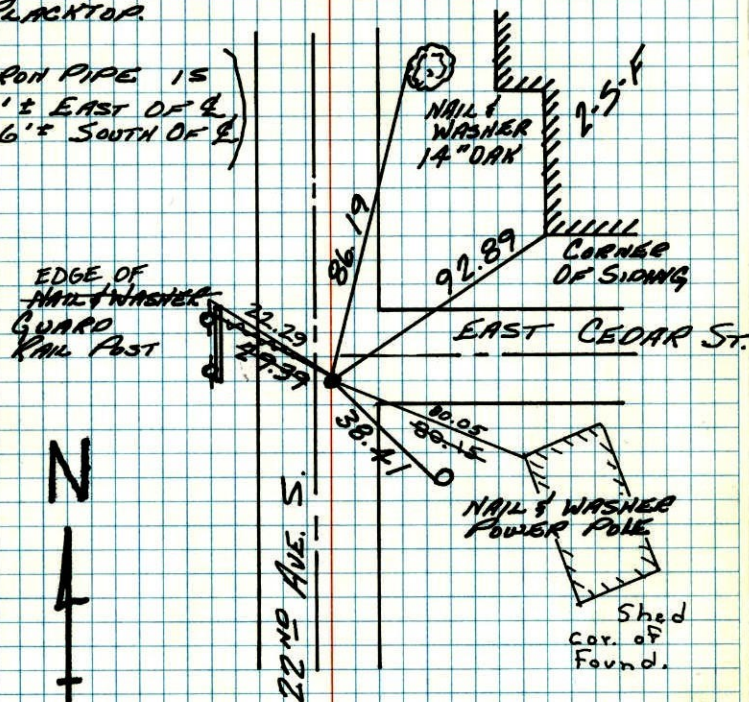 BLACKTOP.
IRON PIPE IS
'± EAST OF ℄
6'± SOUTH OF ℄
NAIL &
WASHER
14" OAK
2.S.F
86.19
92.89
CORNER
OF SIDING
EDGE OF
NAIL & WASHER
GUARD
RAIL POST
22.29
EAST CEDAR ST.
38.41
80.05
80.15
N
NAIL & WASHER
POWER POLE
22ND AVE. S.
Shed
cor. of
Found.